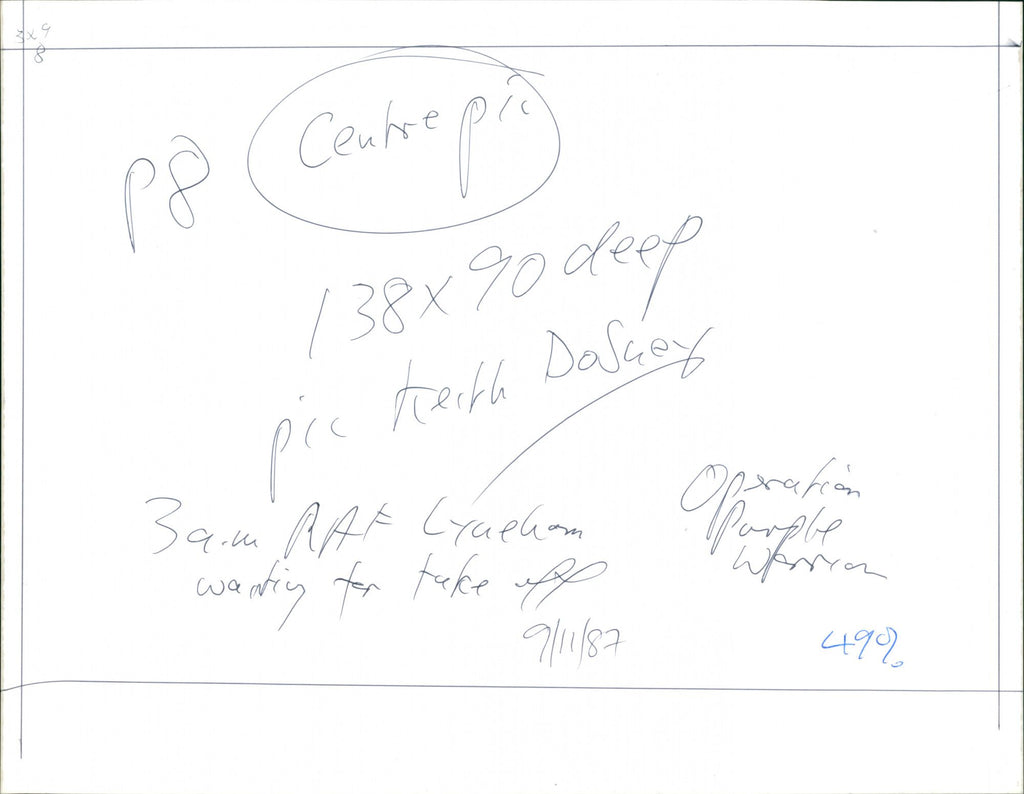 3x9
8
p8
Centre pic
138 x 90 deep
pic Keith
3 a.m RAF Lyneham
waiting for take off
Operation
Purple
Warrior
9/11/87
49%